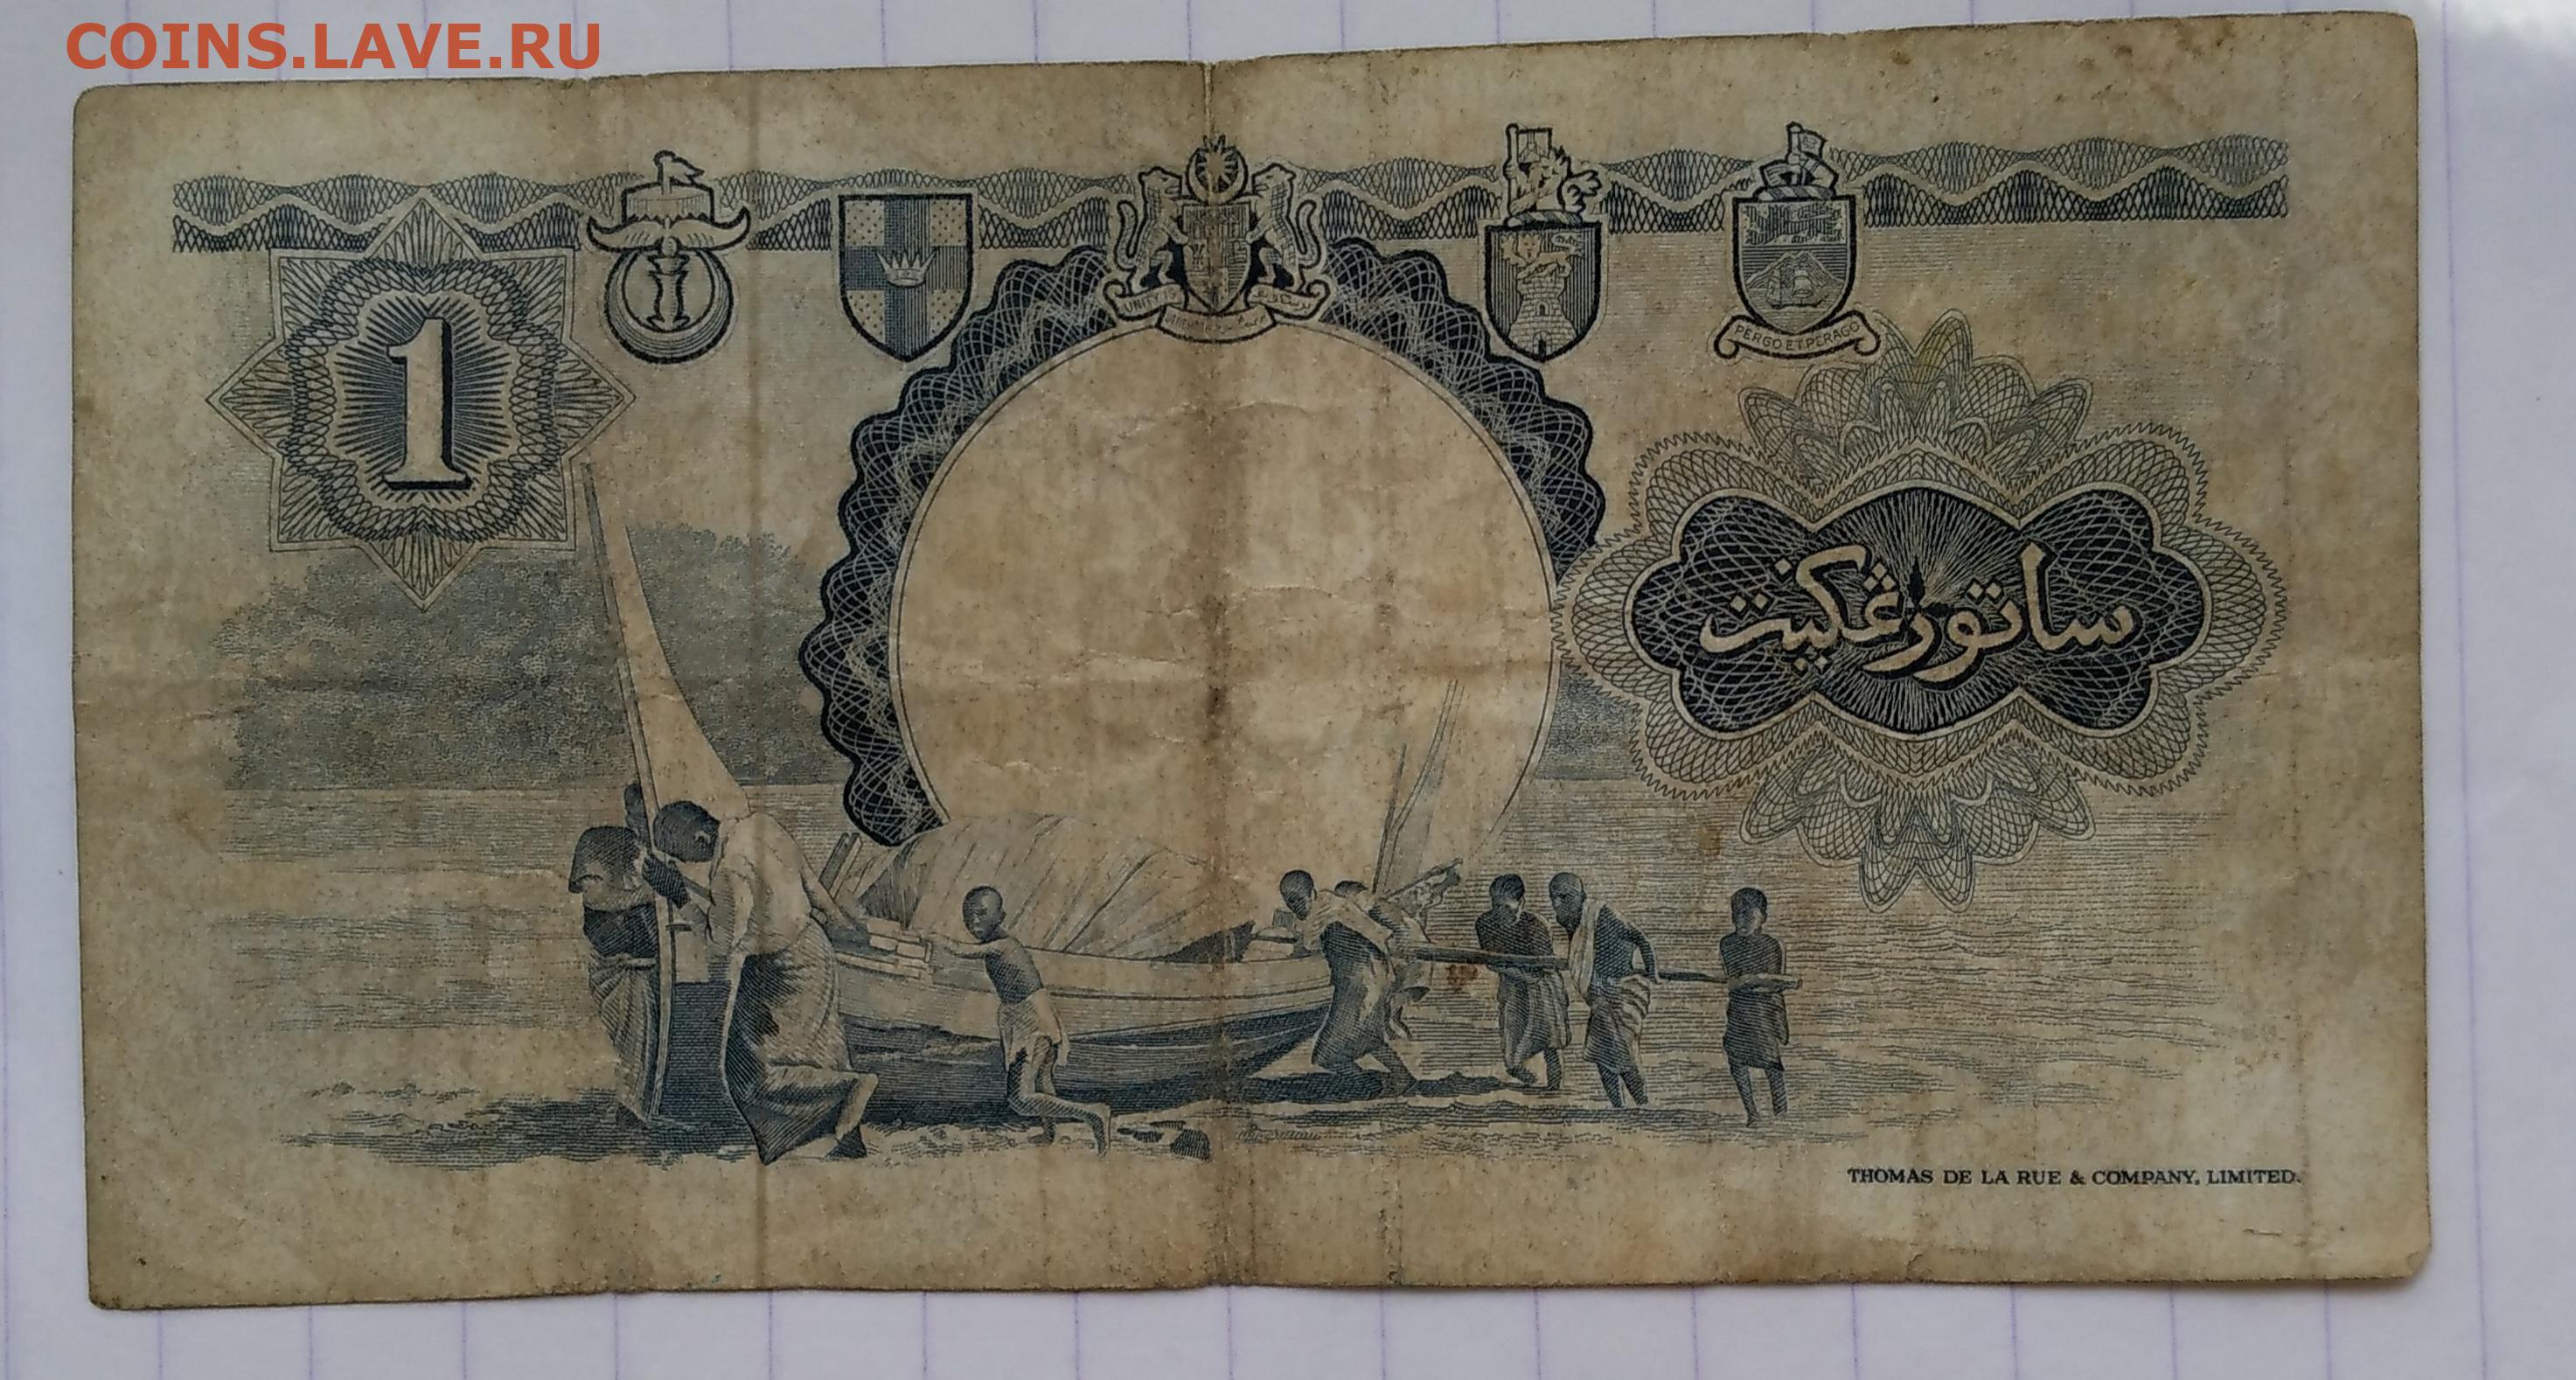 COINS.LAVE.RU
1
UNITY IS
PERGO ET PERAGO
ساتو رڠݢيت
THOMAS DE LA RUE & COMPANY, LIMITED.